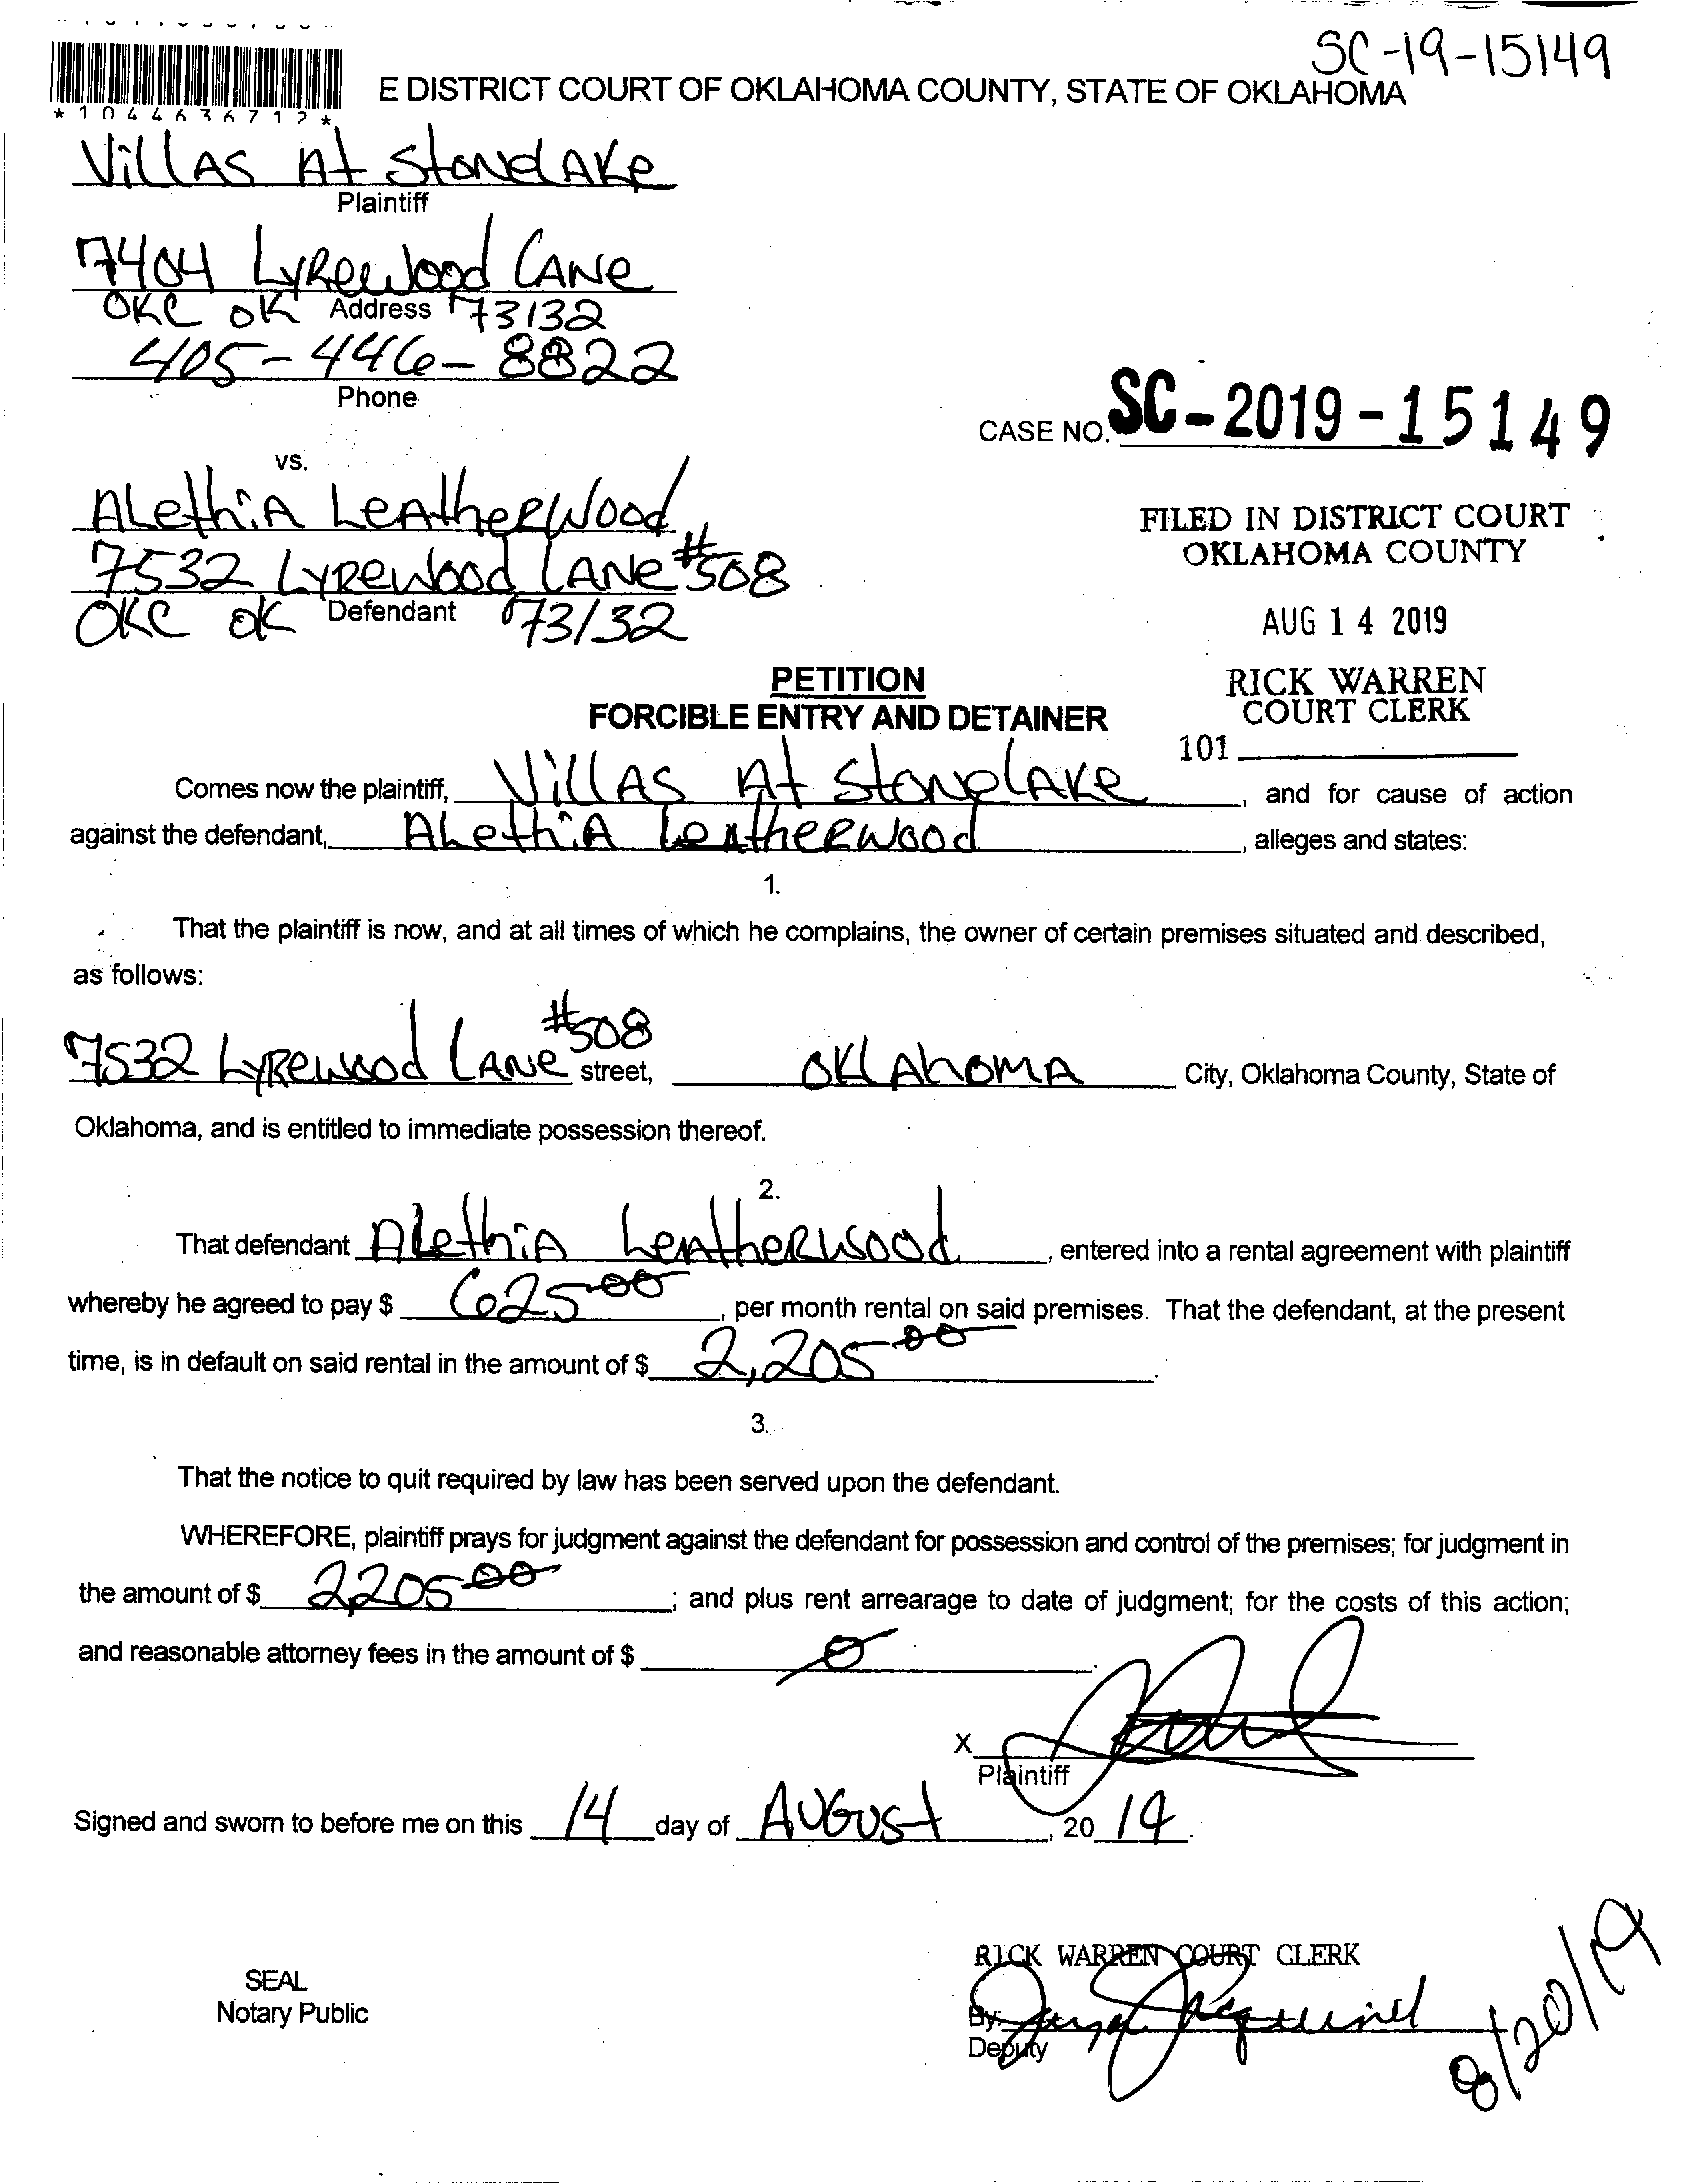 SC-19-15149
E DISTRICT COURT OF OKLAHOMA COUNTY, STATE OF OKLAHOMA
*1044636712*
Villas At Stonelake
Plaintiff
7404 Lyrewood Lane
Address
OKC OK 73132
405-446-8822
Phone
CASE NO. SC-2019-15149
vs.
Alethia Leatherwood
7532 Lyrewood Lane #508
Defendant
OKC OK 73132
FILED IN DISTRICT COURT
OKLAHOMA COUNTY
AUG 14 2019
RICK WARREN
COURT CLERK
101
PETITION
FORCIBLE ENTRY AND DETAINER
Comes now the plaintiff, Villas At Stonelake, and for cause of action
against the defendant, Alethia Leatherwood, alleges and states:
1.
That the plaintiff is now, and at all times of which he complains, the owner of certain premises situated and described,
as follows:
7532 Lyrewood Lane #508 street, Oklahoma City, Oklahoma County, State of
Oklahoma, and is entitled to immediate possession thereof.
2.
That defendant Alethia Leatherwood, entered into a rental agreement with plaintiff
whereby he agreed to pay $ 625 00, per month rental on said premises. That the defendant, at the present
time, is in default on said rental in the amount of $ 2,205 00.
3.
That the notice to quit required by law has been served upon the defendant.
WHEREFORE, plaintiff prays for judgment against the defendant for possession and control of the premises; for judgment in
the amount of $ 2,205 00; and plus rent arrearage to date of judgment; for the costs of this action;
and reasonable attorney fees in the amount of $ 0.
X
Plaintiff
Signed and sworn to before me on this 14 day of August, 20 19.
RICK WARREN COURT CLERK
SEAL
Notary Public
By:
Deputy
8/20/19